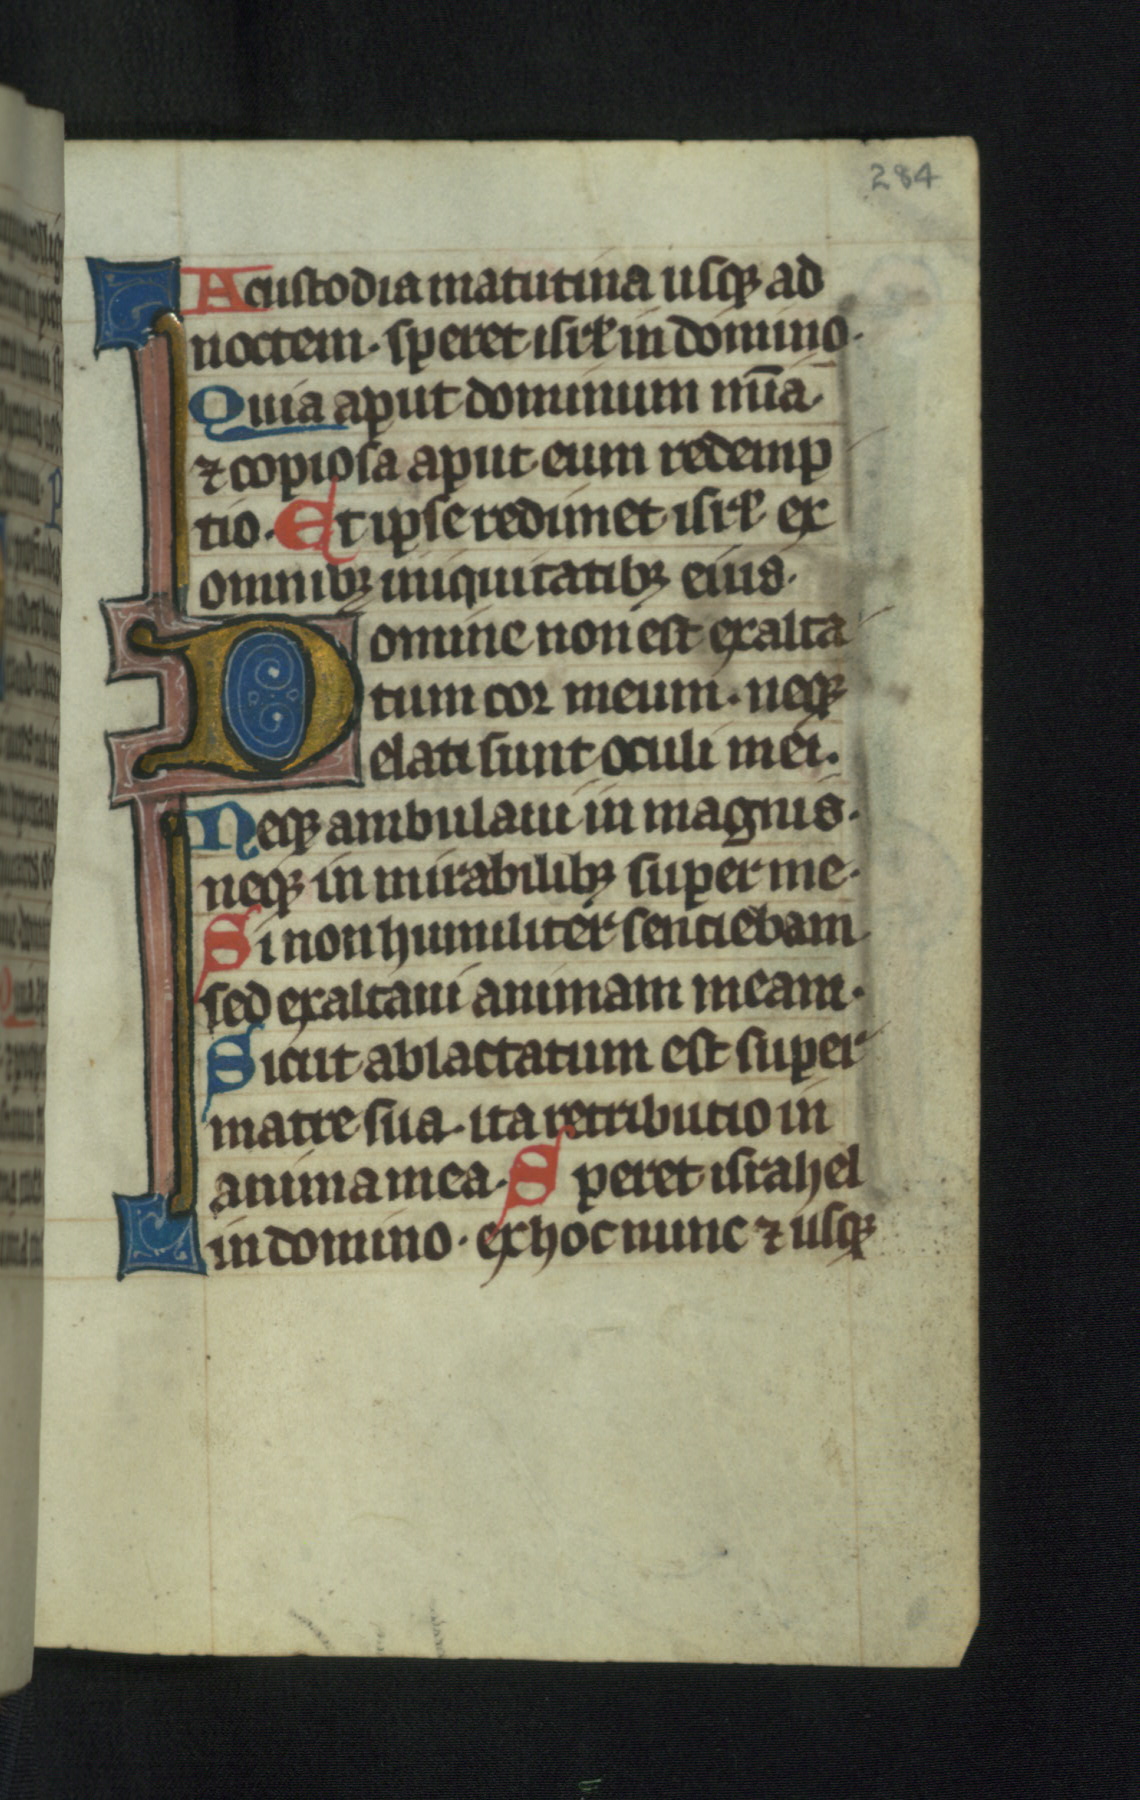 284
A custodia matutina usqꝫ ad
noctem · speret isrl̄ in domino ·
Quia aput dominum mīa ·
⁊ copiosa aput eum redemp
tio · Et ipse redimet isrl̄ ex
omnibꝫ iniquitatibꝫ eius ·
Domine non est exalta
tum cor meum · neqꝫ
elati sunt oculi mei ·
Neqꝫ ambulaui in magnis ·
neqꝫ in mirabilibꝫ super me ·
Si non humiliter sentiebam
sed exaltaui animam meam ·
Sicut ablactatum est super
matre sua · ita retributio in
anima mea · Speret israhel
in domino · ex hoc nunc ⁊ usqꝫ